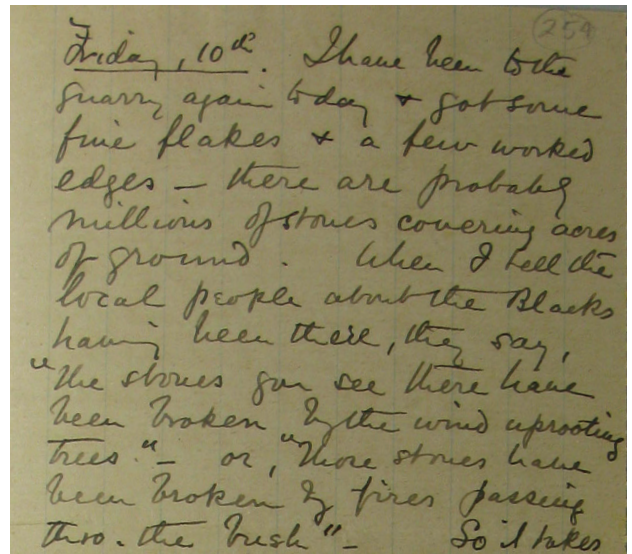 259
Friday, 10th. I have been to the
quarry again today & got some
fine flakes & a few worked
edges — there are probably
millions of stones covering acres
of ground. When I tell the
local people about the Blacks
having been there, they say,
"the stones you see there have
been broken by the wind uprooting
trees." — or, "those stones have
been broken by fires passing
thro. the bush" — So it takes